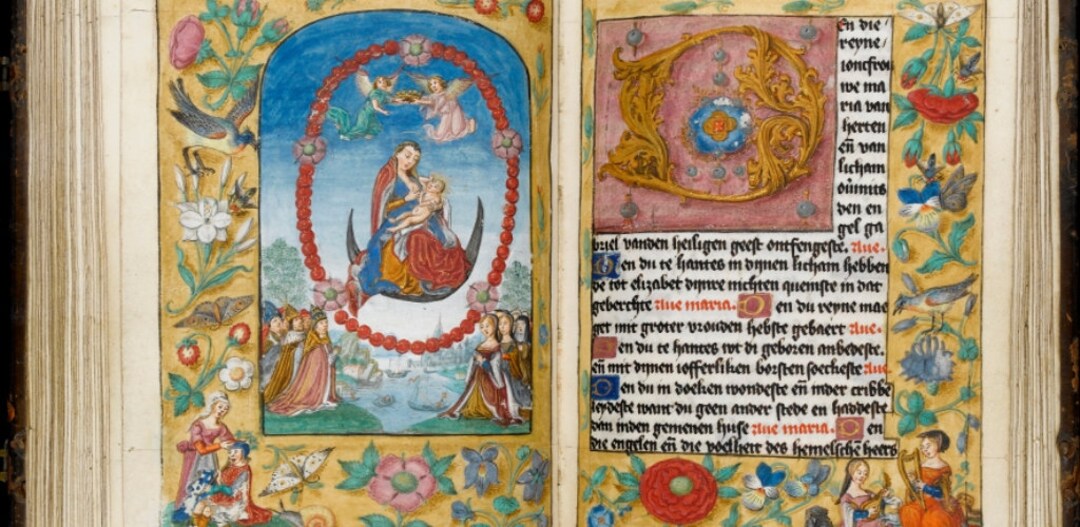 En die
reyne
ioncfrou
we ma
ria van
herten
en̄ van
licham
ouͤmits
den en
gel ga
briel vanden heiligen geest ontfengeste. Aue.
en du te hantes in dijnen licham hebben
de tot elizabet dijnre nichten quemste in dat
geberchte Aue maria. en du reyne mae
get mit groter vrouden hebste gebaert Aue.
en du te hantes tot di geboren anbedeste.
en̄ mit dijnen iofferliken borsten soeckeste Aue
en du in doeken wondeste en̄ inder cribbe
leydeste want du geen ander stede en haddeste
van inden gemenen huse Aue maria. en
die engelen en̄ die voelheit des hemelschē heers